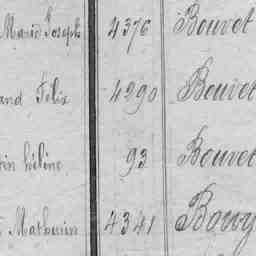 Marie Joseph 4376 Bouvet
and Félix 4290 Bouvet
tin hélène 93 Bouvet
Mathurin 4341 Bouvy